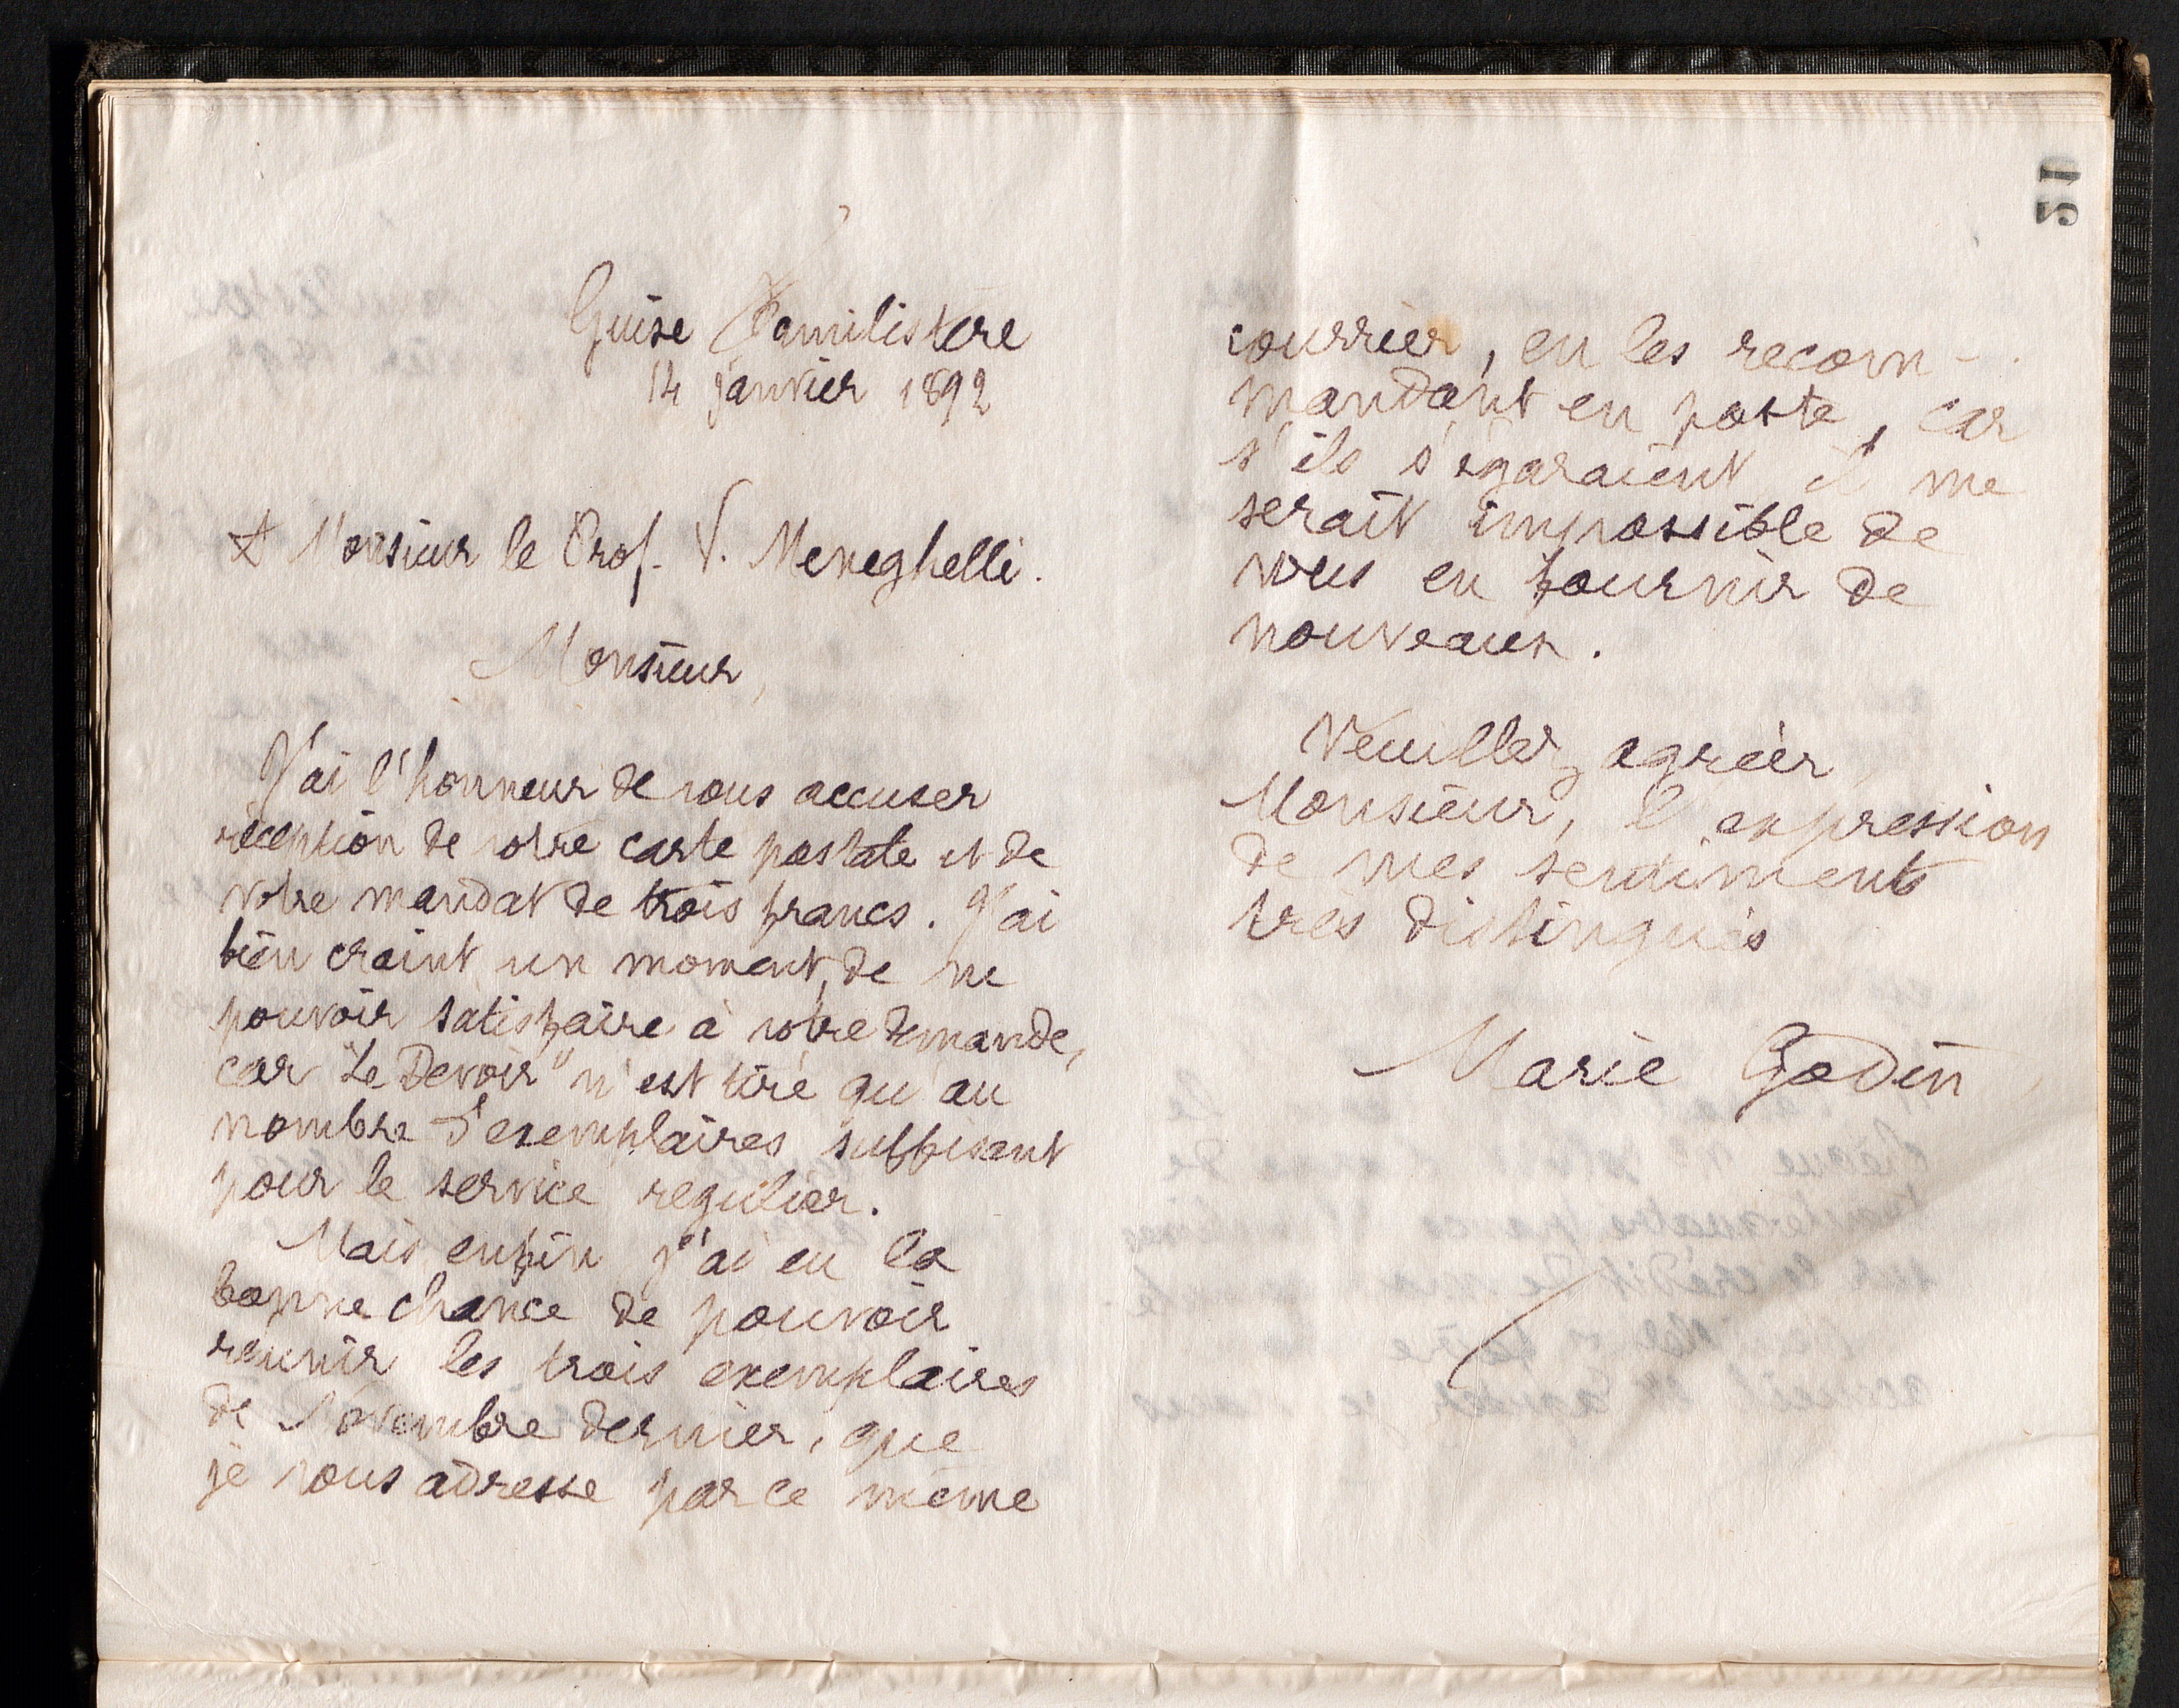 Guise Familistère
14 janvier 1892
A Monsieur le Prof. V. Meneghelli.
Monsieur,
J'ai l'honneur de vous accuser
réception de votre carte postale et de
votre mandat de trois francs. J'ai
bien craint un moment, de ne
pouvoir satisfaire à votre demande,
car "Le Devoir" n'est tiré qu'au
nombre d'exemplaires suffisant
pour le service régulier.
Mais enfin j'ai eu la
bonne chance de pouvoir
réunir les trois exemplaires
de Novembre dernier, que
je vous adresse par ce même
51
courrier, en les recom-
mandant en poste, car
s'ils s'égaraient il me
serait impossible de
vous en fournir de
nouveaux.
Veuillez agréer,
Monsieur, l'expression
de mes sentiments
très distingués
Marie Godin